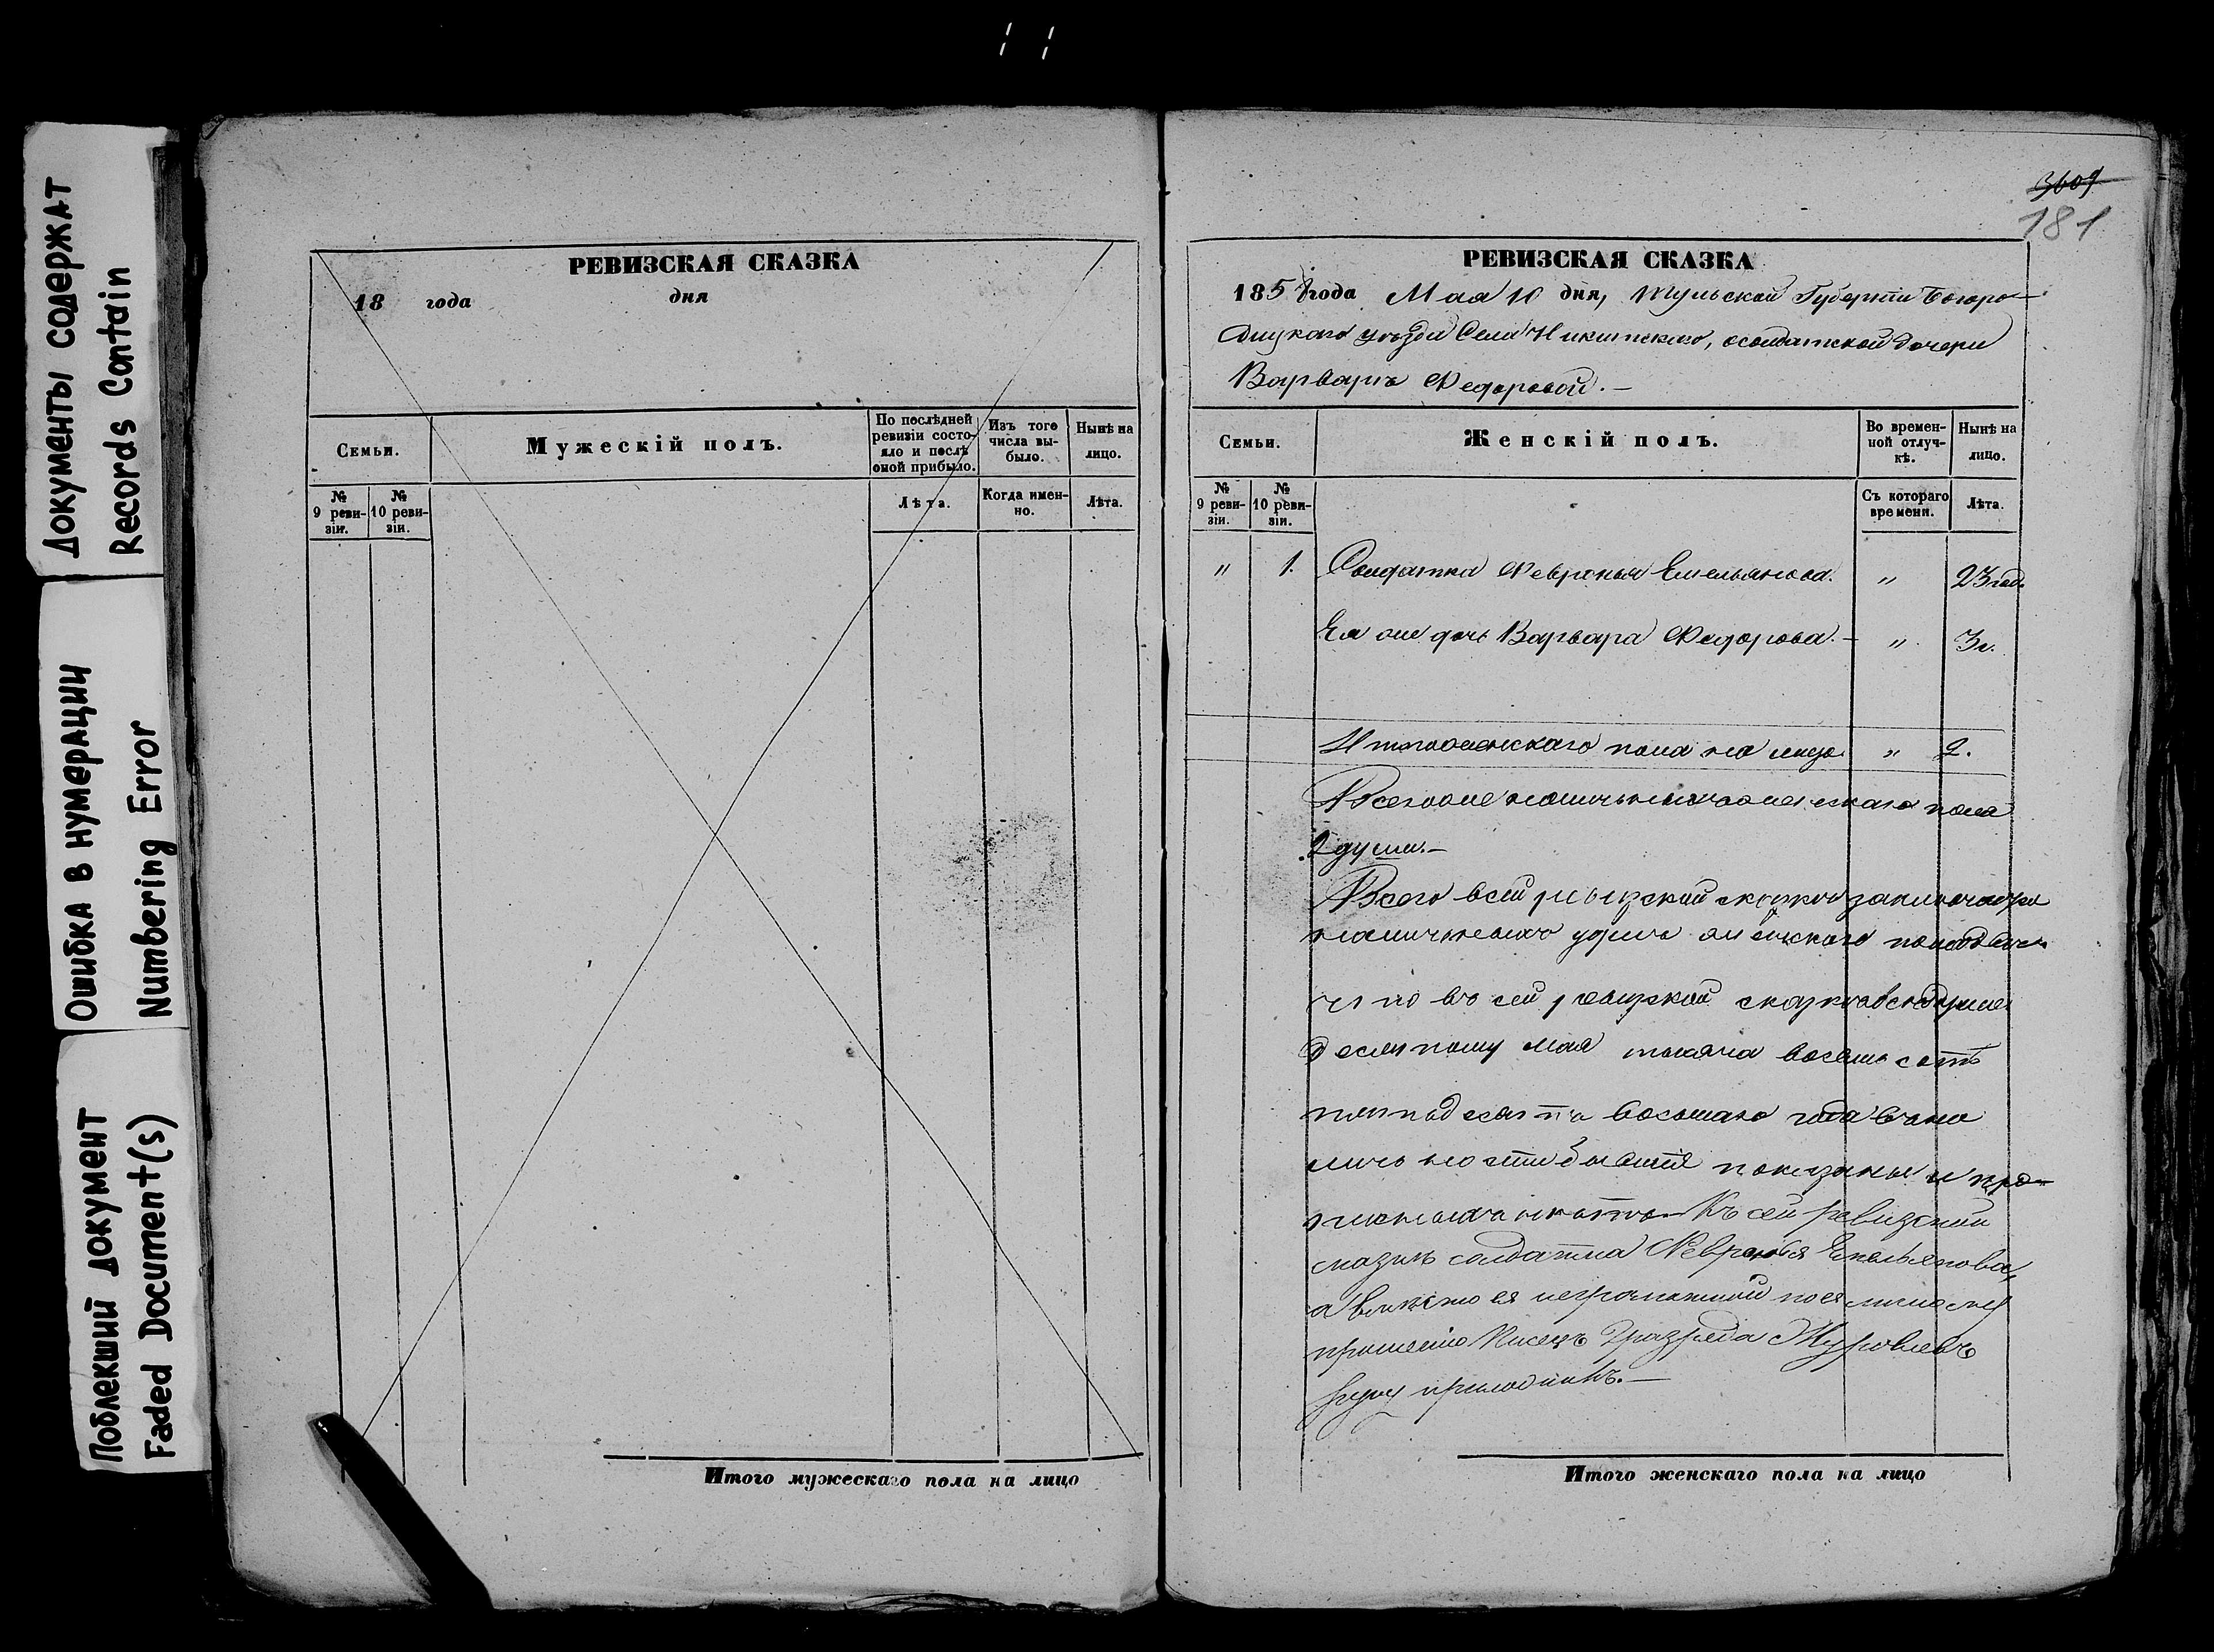 Документы содержат
Records Contain
Ошибка в нумерации
Numbering Error
Поблекший документ
Faded Document(s)
РЕВИЗСКАЯ СКАЗКА
18 года дня
Семьи.
Мужескій полъ.
По послѣдней
ревизіи состо-
яло и послѣ
оной прибыло.
Изъ того
числа вы-
было.
Нынѣ на
лицо.
№
9 реви-
зіи.
№
10 реви-
зіи.
Лѣта.
Когда имен-
но.
Лѣта.
Итого мужескаго пола на лицо
3609
181
РЕВИЗСКАЯ СКАЗКА
1858 года Мая 10 дня, Тульской Губерніи Богоро-
дицкаго уѣзда Села Никитскаго, солдатской дочери
Варварѣ Федоровой.—
Семьи.
Женскій полъ.
Во времен-
ной отлуч-
кѣ.
Нынѣ на
лицо.
№
9 реви-
зіи.
№
10 реви-
зіи.
Съ котораго
времени.
Лѣта.
" 1. Солдатка Февронья Емельянова. " 23 год.
Ея же дочь Варвара Федорова.— " 3 г.
Итого женскаго пола на лицо " 2.
Всего же наличныхъ женскаго пола
2 души.—
Всего въ сей ревизской сказкѣ заключается
наличныхъ душъ женскаго пола двѣ
что въ сей ревизской сказкѣ всѣ души
десятому мая тысяча восемь сотъ
пятьдесятъ восьмаго года въ на
личности бывшія показаны и про-
писныхъ нѣтъ.— Къ сей ревизской
сказкѣ солдатка Февронья Емельянова,
а вмѣсто ея неграмотной по ея личному
прошенію Писецъ 2 разряда Журовлевъ
руку приложилъ.—
Итого женскаго пола на лицо